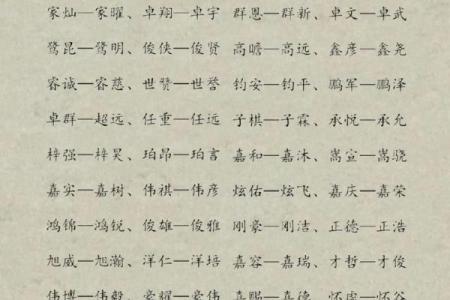 家灿—家曜、卓翔—卓宇 群恩—群新、卓文—卓武
鹭昆—鹭明、俊侠—俊贤 高瞻—高远、鑫彦—鑫尧
睿诚—睿慈、世赞—世誉 钧安—钧平、鹏军—鹏泽
卓群—超远、任重—任远 子棋—子霖、承悦—承允
梓强—梓昊、珀昂—珀言 嘉和—嘉沐、嵩宣—嵩骁
嘉实—嘉树、伟祺—伟彦 炫佑—炫飞、嘉庆—嘉荣
鸿锦—鸿锐、俊雄—俊雅 刚豪—刚洁、正德—正浩
旭威—旭瀚、洋仁—洋培 嘉容—嘉瑞、才哲—才俊
伟博—伟毅、豪耀—豪 嘉赐—嘉德、怀虚—怀谷